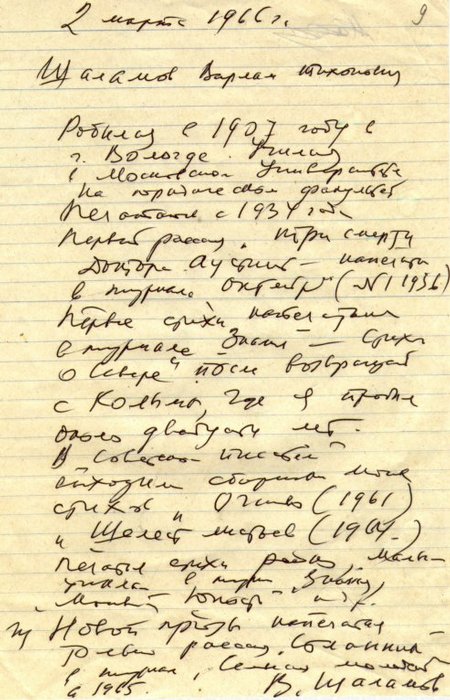 2 марта 1966 г. 9
Шаламов Варлам Тихонович
Родился в 1907 году в
г. Вологде. Учился
в Московском Университете
на юридическом факультете
Печататься с 1934 года
Первый рассказ „Три смерти
доктора Аустино" — напечатан
в журнале „Октябрь" (№1 1936)
Первые стихи напечатаны
в журнале „Знамя" — „Стихи
о Севере" после возвращения
с Колымы, где я провел
около двадцати лет.
В „Советском писателе"
выходили сборники моих
стихов „Огниво" (1961)
и „Шелест листьев" (1964.)
Печатал стихи
в журн „Знамя",
„Москва", „Юность" и др.
Из Новой прозы напечатан
только рассказ „Стланик"
в журнале „Сельская молодежь"
в 1965. В. Шаламов